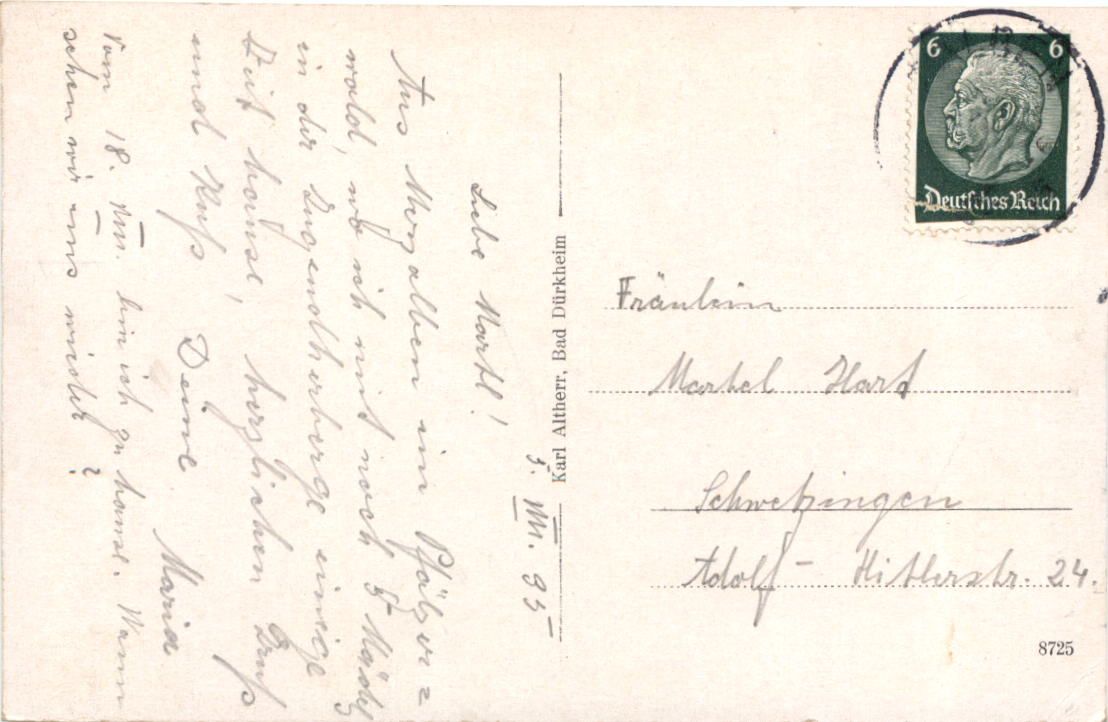 5. VIII. 35
Liebe Martl!
Aus Merzalben im Pfälzer=
wald, wo ich mit noch 5 Mädels
in der Jugendherberge einige
Zeit hause, herzlichen Gruß
und Kuß Deine Maria
Vom 18. VIII. bin ich zu hause. Wann
sehen wir uns wieder?
Karl Altherr, Bad Dürkheim
6 6
Deutsches Reich
Fräulein
Martel Hart
Schwetzingen
Adolf-Hitlerstr. 24.
8725